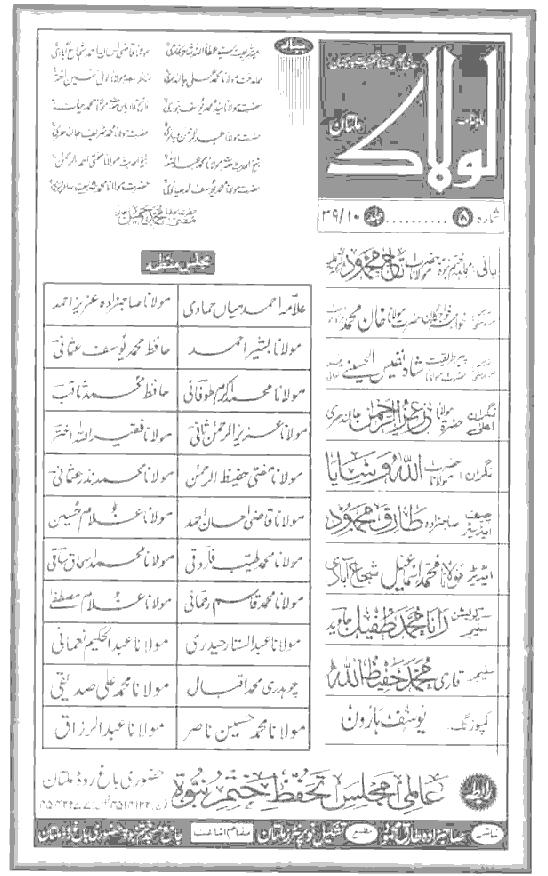 ماہنامہ
لولاک
ملتان
شمارہ ۸ .......... جلد ۳۹/۱۰
بیاد
امیر شریعت سید عطاء اللہ شاہ بخاری مولانا قاضی احسان احمد شجاع آبادی
مولانا محمد علی جالندھری مولانا لال حسین اختر
حضرت مولانا سید محمد یوسف بنوری فاتح قادیان حضرت مولانا محمد حیات
حضرت مولانا محمد شریف جالندھری
شیخ الحدیث حضرت مولانا محمد عبداللہ شیخ الحدیث مولانا مفتی احمد الرحمٰن
حضرت مولانا محمد یوسف لدھیانوی
حضرت مولانا مفتی محمد جمیل خان
مجلس منتظمہ
علامہ احمد میاں حمادی مولانا صاحبزادہ عزیز احمد
مولانا بشیر احمد حافظ محمد یوسف عثمانی
مولانا محمد اکرم طوفانی حافظ محمد ثاقب
مولانا عزیز الرحمٰن ثانی مولانا فقیر اللہ اختر
مولانا مفتی حفیظ الرحمٰن مولانا محمد نذر عثمانی
مولانا قاضی احسان احمد مولانا غلام حسین
مولانا محمد طیب فاروقی مولانا محمد اسحاق ساقی
مولانا محمد قاسم رحمانی مولانا غلام مصطفےٰ
مولانا عبدالستار حیدری مولانا عبدالحکیم نعمانی
چوہدری محمد اقبال مولانا محمد علی صدیقی
مولانا محمد حسین ناصر مولانا عبدالرزاق
بانی: مجاہد ختم نبوۃ حضرت مولانا تاج محمود
خواجہ خواجگان حضرت مولانا خان محمد
پیر طریقت حضرت مولانا شاہ نفیس الحسینی
نگران اعلیٰ حضرت مولانا عزیز الرحمٰن جالندھری
نگران: حضرت مولانا اللہ وسایا
چیف ایڈیٹر صاحبزادہ طارق محمود
ایڈیٹر مولانا محمد اسماعیل شجاع آبادی
سرکولیشن منیجر رانا محمد طفیل جاوید
منیجر قاری محمد حفیظ اللہ
کمپوزنگ: یوسف ہارون
رابطہ عالمی مجلس تحفظ ختم نبوۃ حضوری باغ روڈ ملتان
ناشر صاحبزادہ طارق محمود مطبع تشکیل نو پرنٹرز ملتان مقام اشاعت جامع مسجد ختم نبوۃ حضوری باغ روڈ ملتان